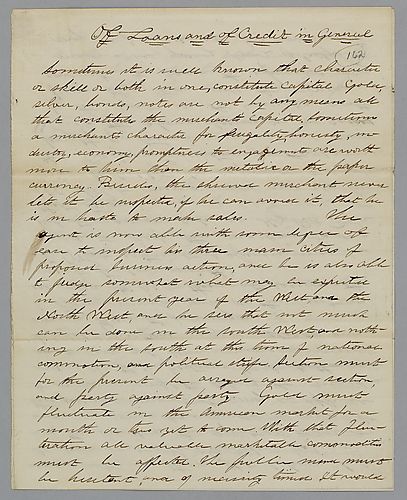 Of Loans and of Credit in General
162
Sometimes it is well known that character
or skill or both in one, constitute capital. Gold,
silver, bonds, notes are not by any means all
that constitute the merchants capital. Sometimes
a merchants character for frugality, honesty, in-
dustry, economy, promptness to engagement are worth
more to him than the metalic or the paper
currency. Besides, the shrewd merchant never
lets it be suspected, if he can avoid it, that he
is in haste to make sales. The
agent is now able with some degree of
ease to inspect his three main cities of
proposed business action, and he is also able
to judge somewhat what may be expected
in the present year of the West and the
North West and he sees that not much
can be done in the South West, and noth-
ing in the South at this time of national
commotion, and political strife. Section must
for the present be arrayed against section,
and party against party. Gold must
fluctuate in the American market for a
month or two yet to come. With that fluc-
tuation all valuable marketable commodities
must be affected. The public mind must
be hesitant and of necessity timid. It would